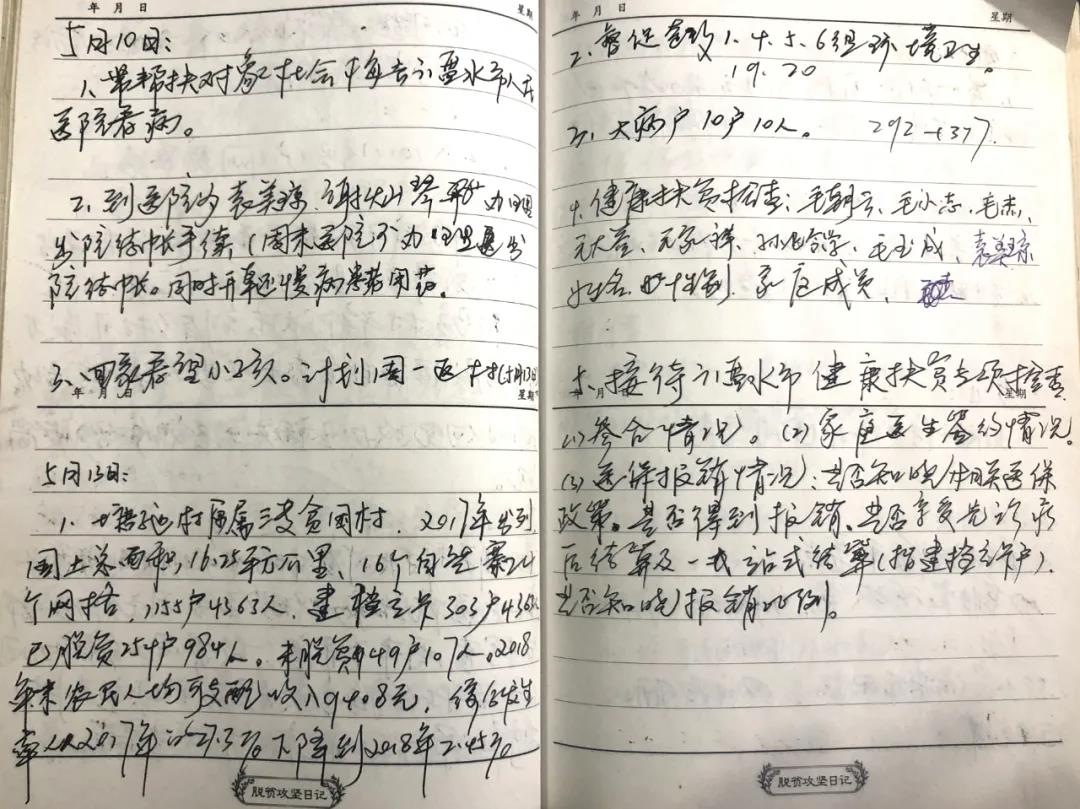 年 月 日 星期
5月10日:
1、带帮扶对象杜会梅去赤水市人民
医院看病。
2、到医院为袁美琼、谢灿琴 办理
出院结帐手续(周末医院不办理出
院结帐。同时开车 慢病患者用药。
3、回家看望小孩。计划周一返村(5月13日)
年 月 日 星期
5月13日:
1、 村属 贫困村、2017年 列
国土总面积,16.25平方公里、16个自然寨24
个网格,1155户4363人、建档立卡303户
已脱贫254户984人。未脱贫49户107人。2018
年末农民人均可支配收入9408元,综合发生
率从2017年的 下降到2018年2.45%
脱贫攻坚日记
年 月 日 星期
2、督促 1、4、5、6组环境卫生。
19、20
3、大病户10户10人。 292→377.
4、健康扶贫核查:毛朝云、毛小志、毛
袁美琼
姓名 性别 家庭成员、
年 月 日 星期
5、接待赤水市健康扶贫专项检查
(1)参合情况。(2)家庭医生签约情况。
(3)医保报销情况:是否知晓相关医保
政策。是否得到报销、是否享受先诊疗
后结算及一站式结算(指建档立卡户)、
是否知晓报销比例。
脱贫攻坚日记